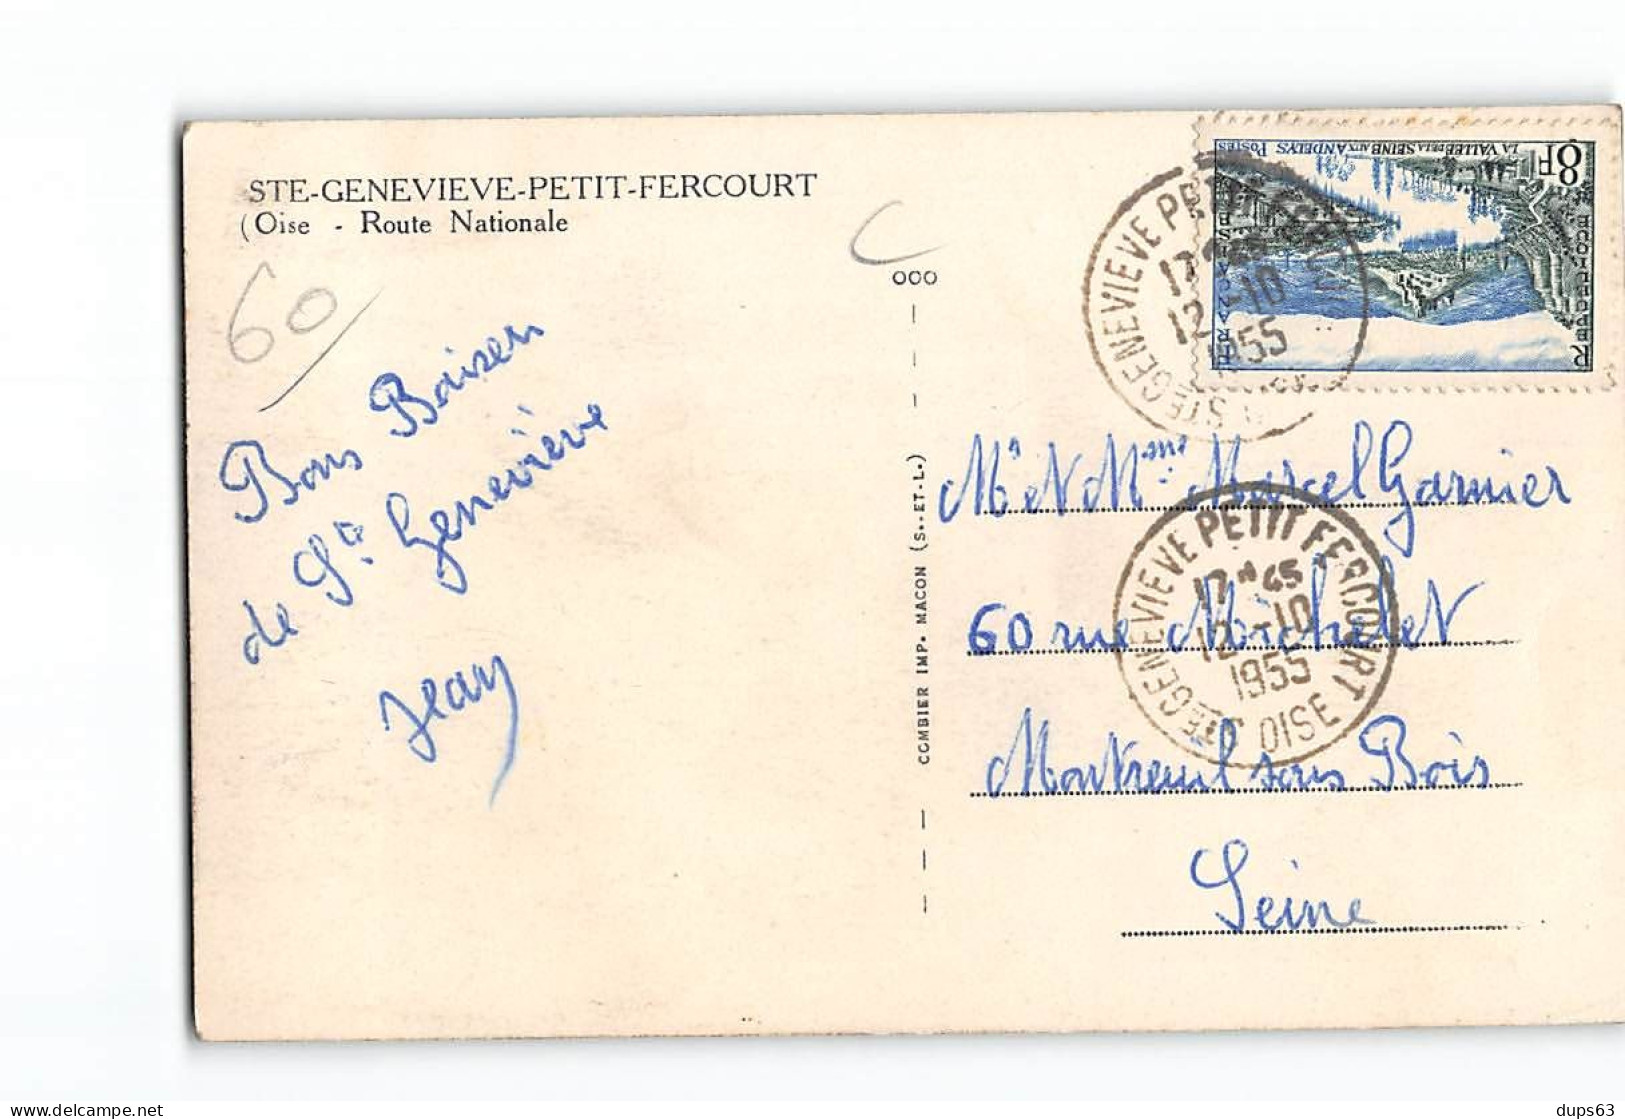 STE-GENEVIEVE-PETIT-FERCOURT
(Oise - Route Nationale
60
Bons Baisers
de Ste Geneviève
Jean
C
ooo
COMBIER IMP. MACON (S.-ET-L.)
8F
LA VALLEE DE LA SEINE AUX ANDELYS POSTES
REPUBLIQUE FRANCAISE
STE GENEVIEVE PETIT FERCOURT
17 H 45
12 -10
1955
Mr et Mme Marcel Garnier
60 rue Michelet
Montreuil sous Bois
Seine
STE GENEVIEVE PETIT FERCOURT
17 H 45
12 -10
1955
OISE
dups63